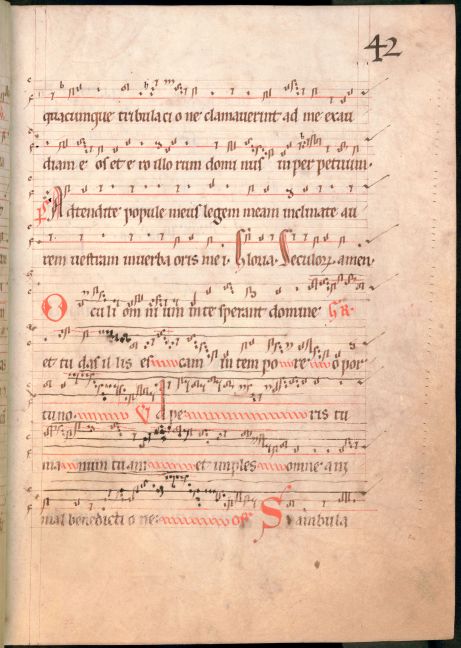 42
quacumque tribulaci o ne clamauerint ad me exau
diam e os et e ro illo rum domi nus in per petuum.
Ps Adtendite popule meus legem meam inclinate au
rem uestram in uerba oris me i. Gloria. Seculorum amen
Oculi om ni um in te sperant domine GR.
et tu das il lis es cam in tem po re o por
tuno. V Ape ris tu
ma num tu am et imples omne ani
mal benedicti o ne. Of. Si ambula